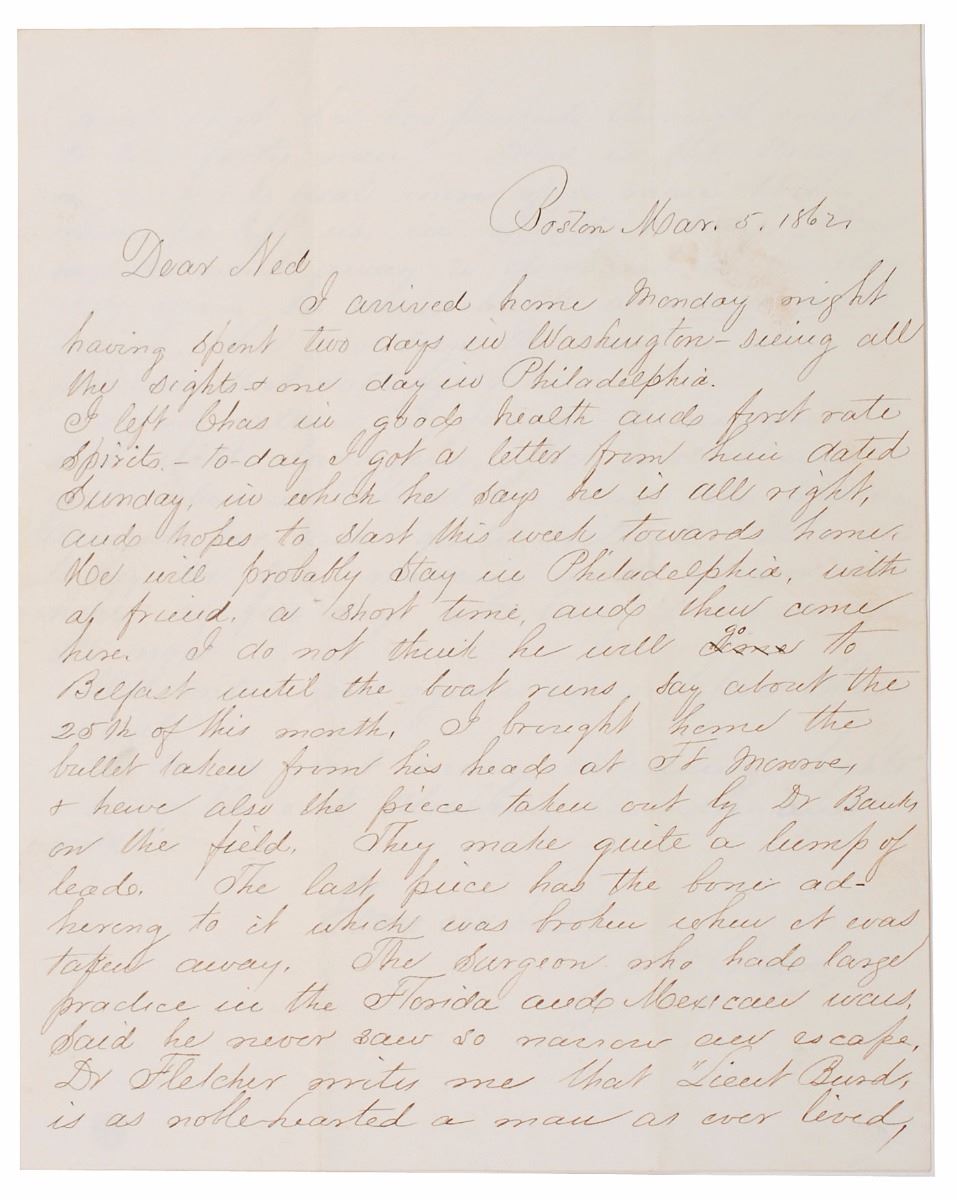 Boston Mar. 5. 1862,
Dear Ned
I arrived home Monday night
having spent two days in Washington - seeing all
the sights & one day in Philadelphia.
I left Chas in good health and first rate
spirits. - to-day I got a letter from him dated
Sunday, in which he says he is all right,
and hopes to start this week towards home.
He will probably stay in Philadelphia, with
a friend. a short time, and then come
here. I do not think he will go to
Belfast until the boat runs say about the
25th of this month. I brought home the
bullet taken from his head at Ft Monroe,
& have also the piece taken out by Dr Banks
on the field. They make quite a lump of
lead. The last piece has the bone ad-
hering to it which was broken when it was
taken away. The Surgeon who had large
practice in the Florida and Mexican wars,
said he never saw so narrow an escape.
Dr Fletcher writes me that "Lieut Burd,
is as noble-hearted a man as ever lived,